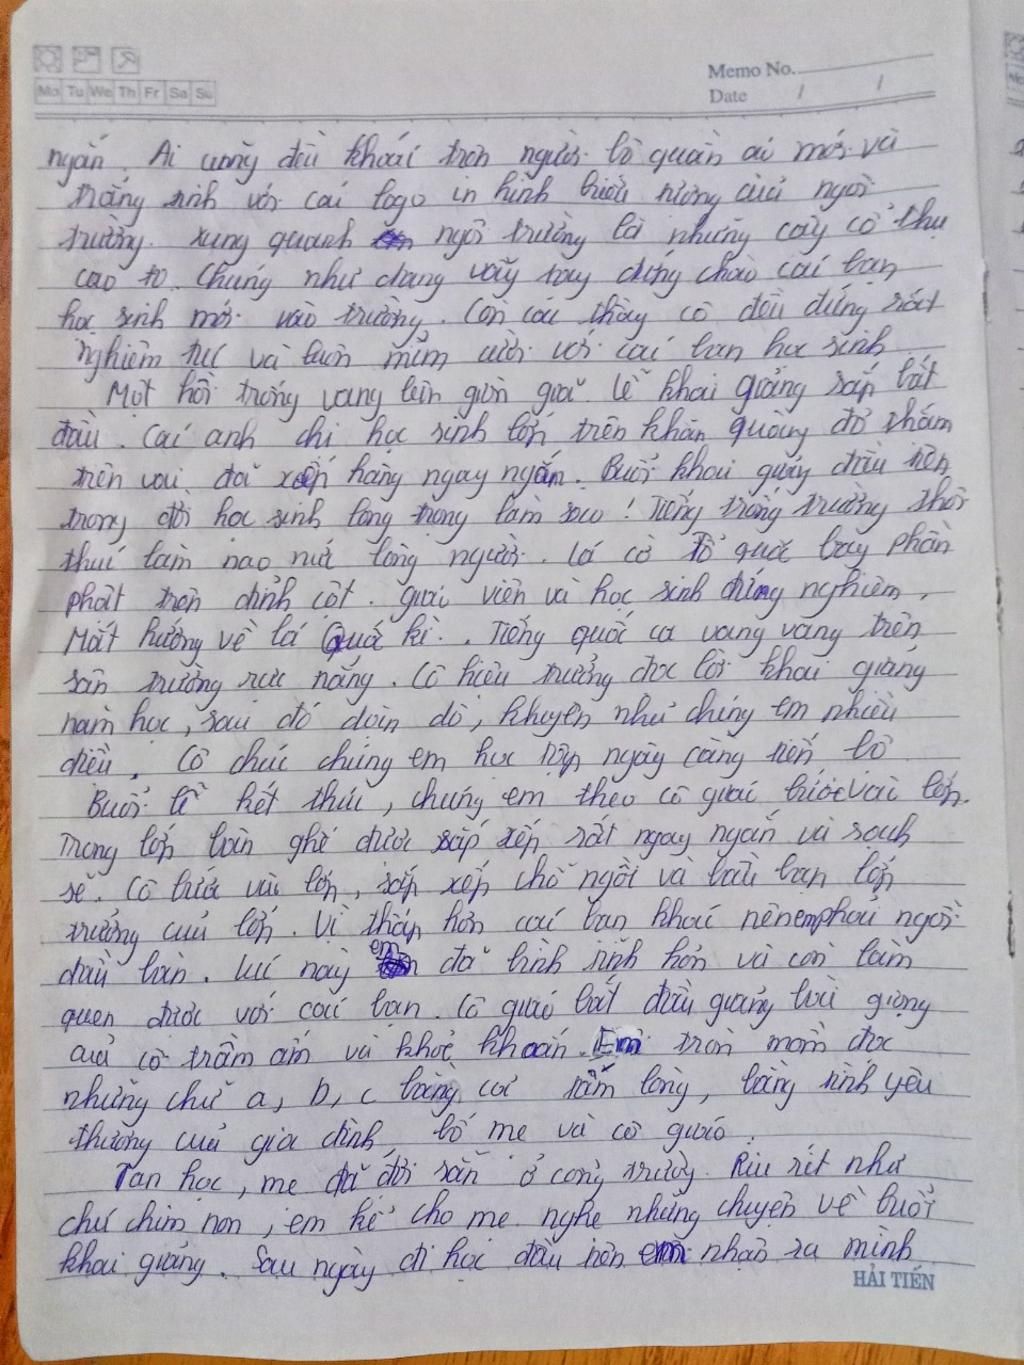 Memo No.
Mo Tu We Th Fr Sa Su
Date / /
ngắn. Ai cũng đều khoác trên người bộ quần áo mới và
trắng tinh với cái logo in hình biểu tượng của ngôi
trường. Xung quanh ngôi trường là những cây cổ thụ
cao to. Chúng như đang vẫy tay đứng chào các bạn
học sinh mới vào trường. Còn các thầy cô đều đứng rất
nghiêm túc và luôn mỉm cười với các bạn học sinh
Một hồi trống vang lên giòn giã. Lễ khai giảng sắp bắt
đầu. Các anh chị học sinh lớp trên khăn quàng đỏ thắm
trên vai, đã xếp hàng ngay ngắn. Buổi khai giảng đầu tiên
trong đời học sinh long trọng làm sao! Tiếng trống trường thôi
thúc làm nao nức lòng người. Lá cờ Tổ quốc bay phần
phật trên đỉnh cột. Giáo viên và học sinh đứng nghiêm.
Mắt hướng về lá Quốc kì. Tiếng quốc ca vang vàng trên
sân trường rực nắng. Cô hiệu trưởng đọc lời khai giảng
năm học, sau đó dặn dò, khuyên nhủ chúng em nhiều
điều. Cô chúc chúng em học tập ngày càng tiến bộ
Buổi lễ kết thúc, chúng em theo cô giáo bước vào lớp.
Trong lớp bàn ghế được sắp xếp rất ngay ngắn và sạch
sẽ. Cô bước vào lớp, sắp xếp chỗ ngồi và bầu bạn lớp
trưởng của lớp. Vì thấp hơn các bạn khác nên em phải ngồi
đầu bàn. Lúc này em đã bình tĩnh hơn và còn làm
quen được với các bạn. Cô giáo bắt đầu giảng bài giọng
của cô trầm ấm và khoẻ khoắn. Em tròn mồm đọc
những chữ a, b, c bằng cả tấm lòng, bằng tình yêu
thương của gia đình, bố mẹ và cô giáo.
Tan học, mẹ đã đợi sẵn ở cổng trường. Ríu rít như
chú chim non, em kể cho mẹ nghe những chuyện về buổi
khai giảng. Sau ngày đi học đầu tiên em nhận ra mình
HẢI TIẾN